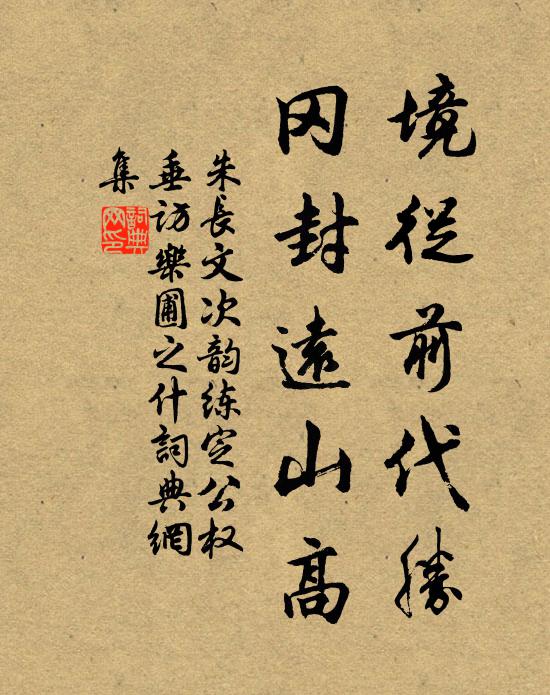 境從前代勝
冈封遠山高
朱長文次韵练定公权
垂訪樂圃之什詞典網
集
詞典网印